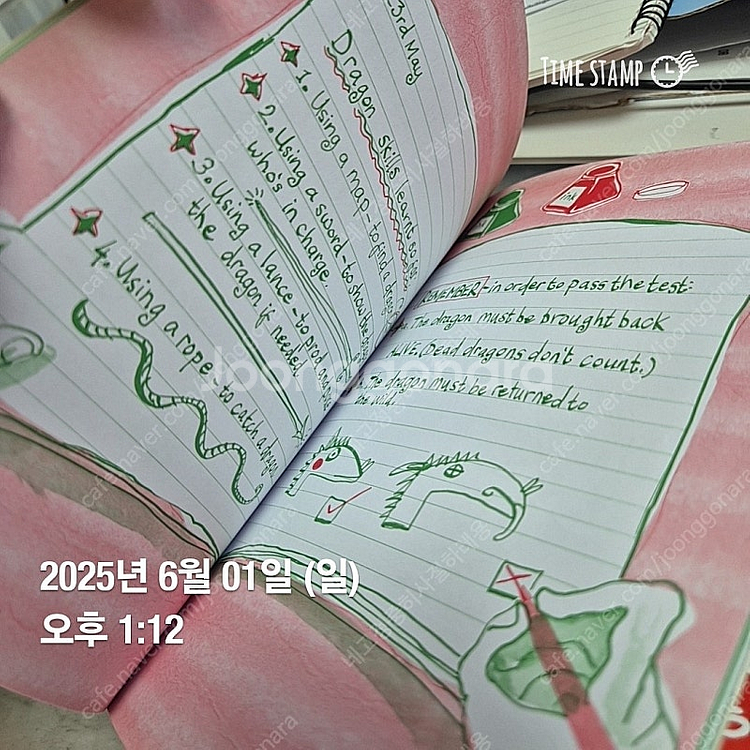 23rd May
Dragon skills learnt so
1. Using a map - to find a dragon
2. Using a sword - to show the
who's in charge.
3. Using a lance - to prod and
the dragon if needed
4. Using a rope to catch a dragon
ink
REMEMBER - in order to pass the test:
The dragon must be brought back
ALIVE. (Dead dragons don't count.)
The dragon must be returned to
the wild.
TIME STAMP
Joonggonara
cafe.naver.com/joonggonara
2025년 6월 01일 (일)
오후 1:12